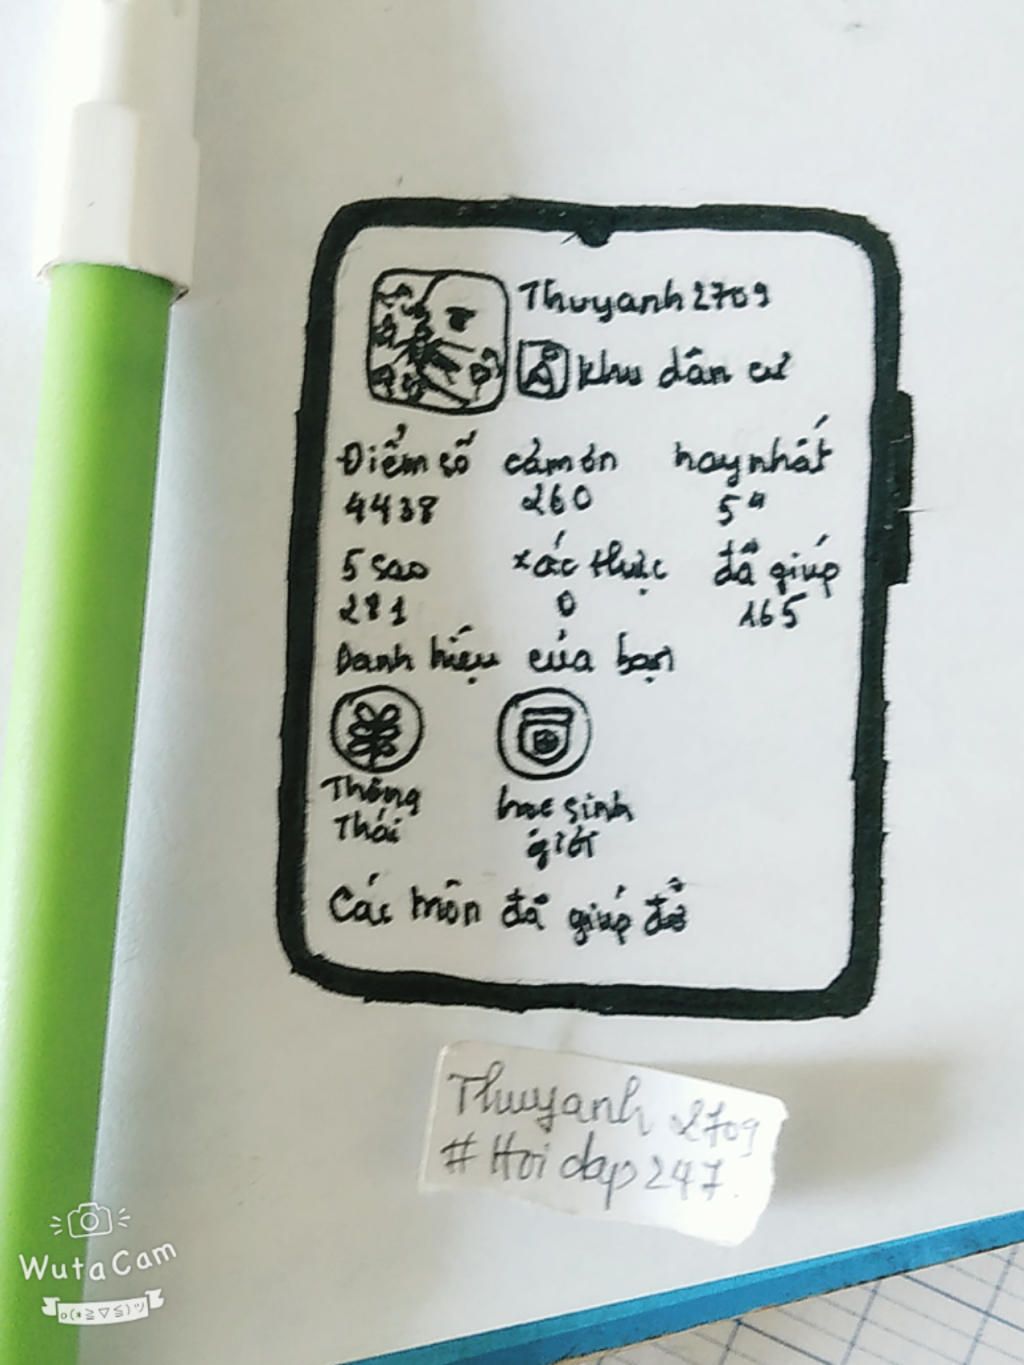 Thuyanh2709
khu dân cư
Điểm số cảm ơn hay nhất
4438 260 5"
5 sao xác thực đã giúp
281 0 165
Danh hiệu của bạn
Thông học sinh
Thái giỏi
Các môn đã giúp đỡ
Thuyanh 2709
# Hoi dap 247
WutaCam
o(*≧▽≦)ツ